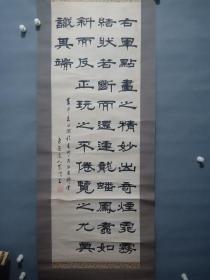 右軍點畫之精妙出奇煙霏霧
結狀若斷而還連龍蟠鳳翥如
斜而反正玩之不倦覽之尤莫
識其端